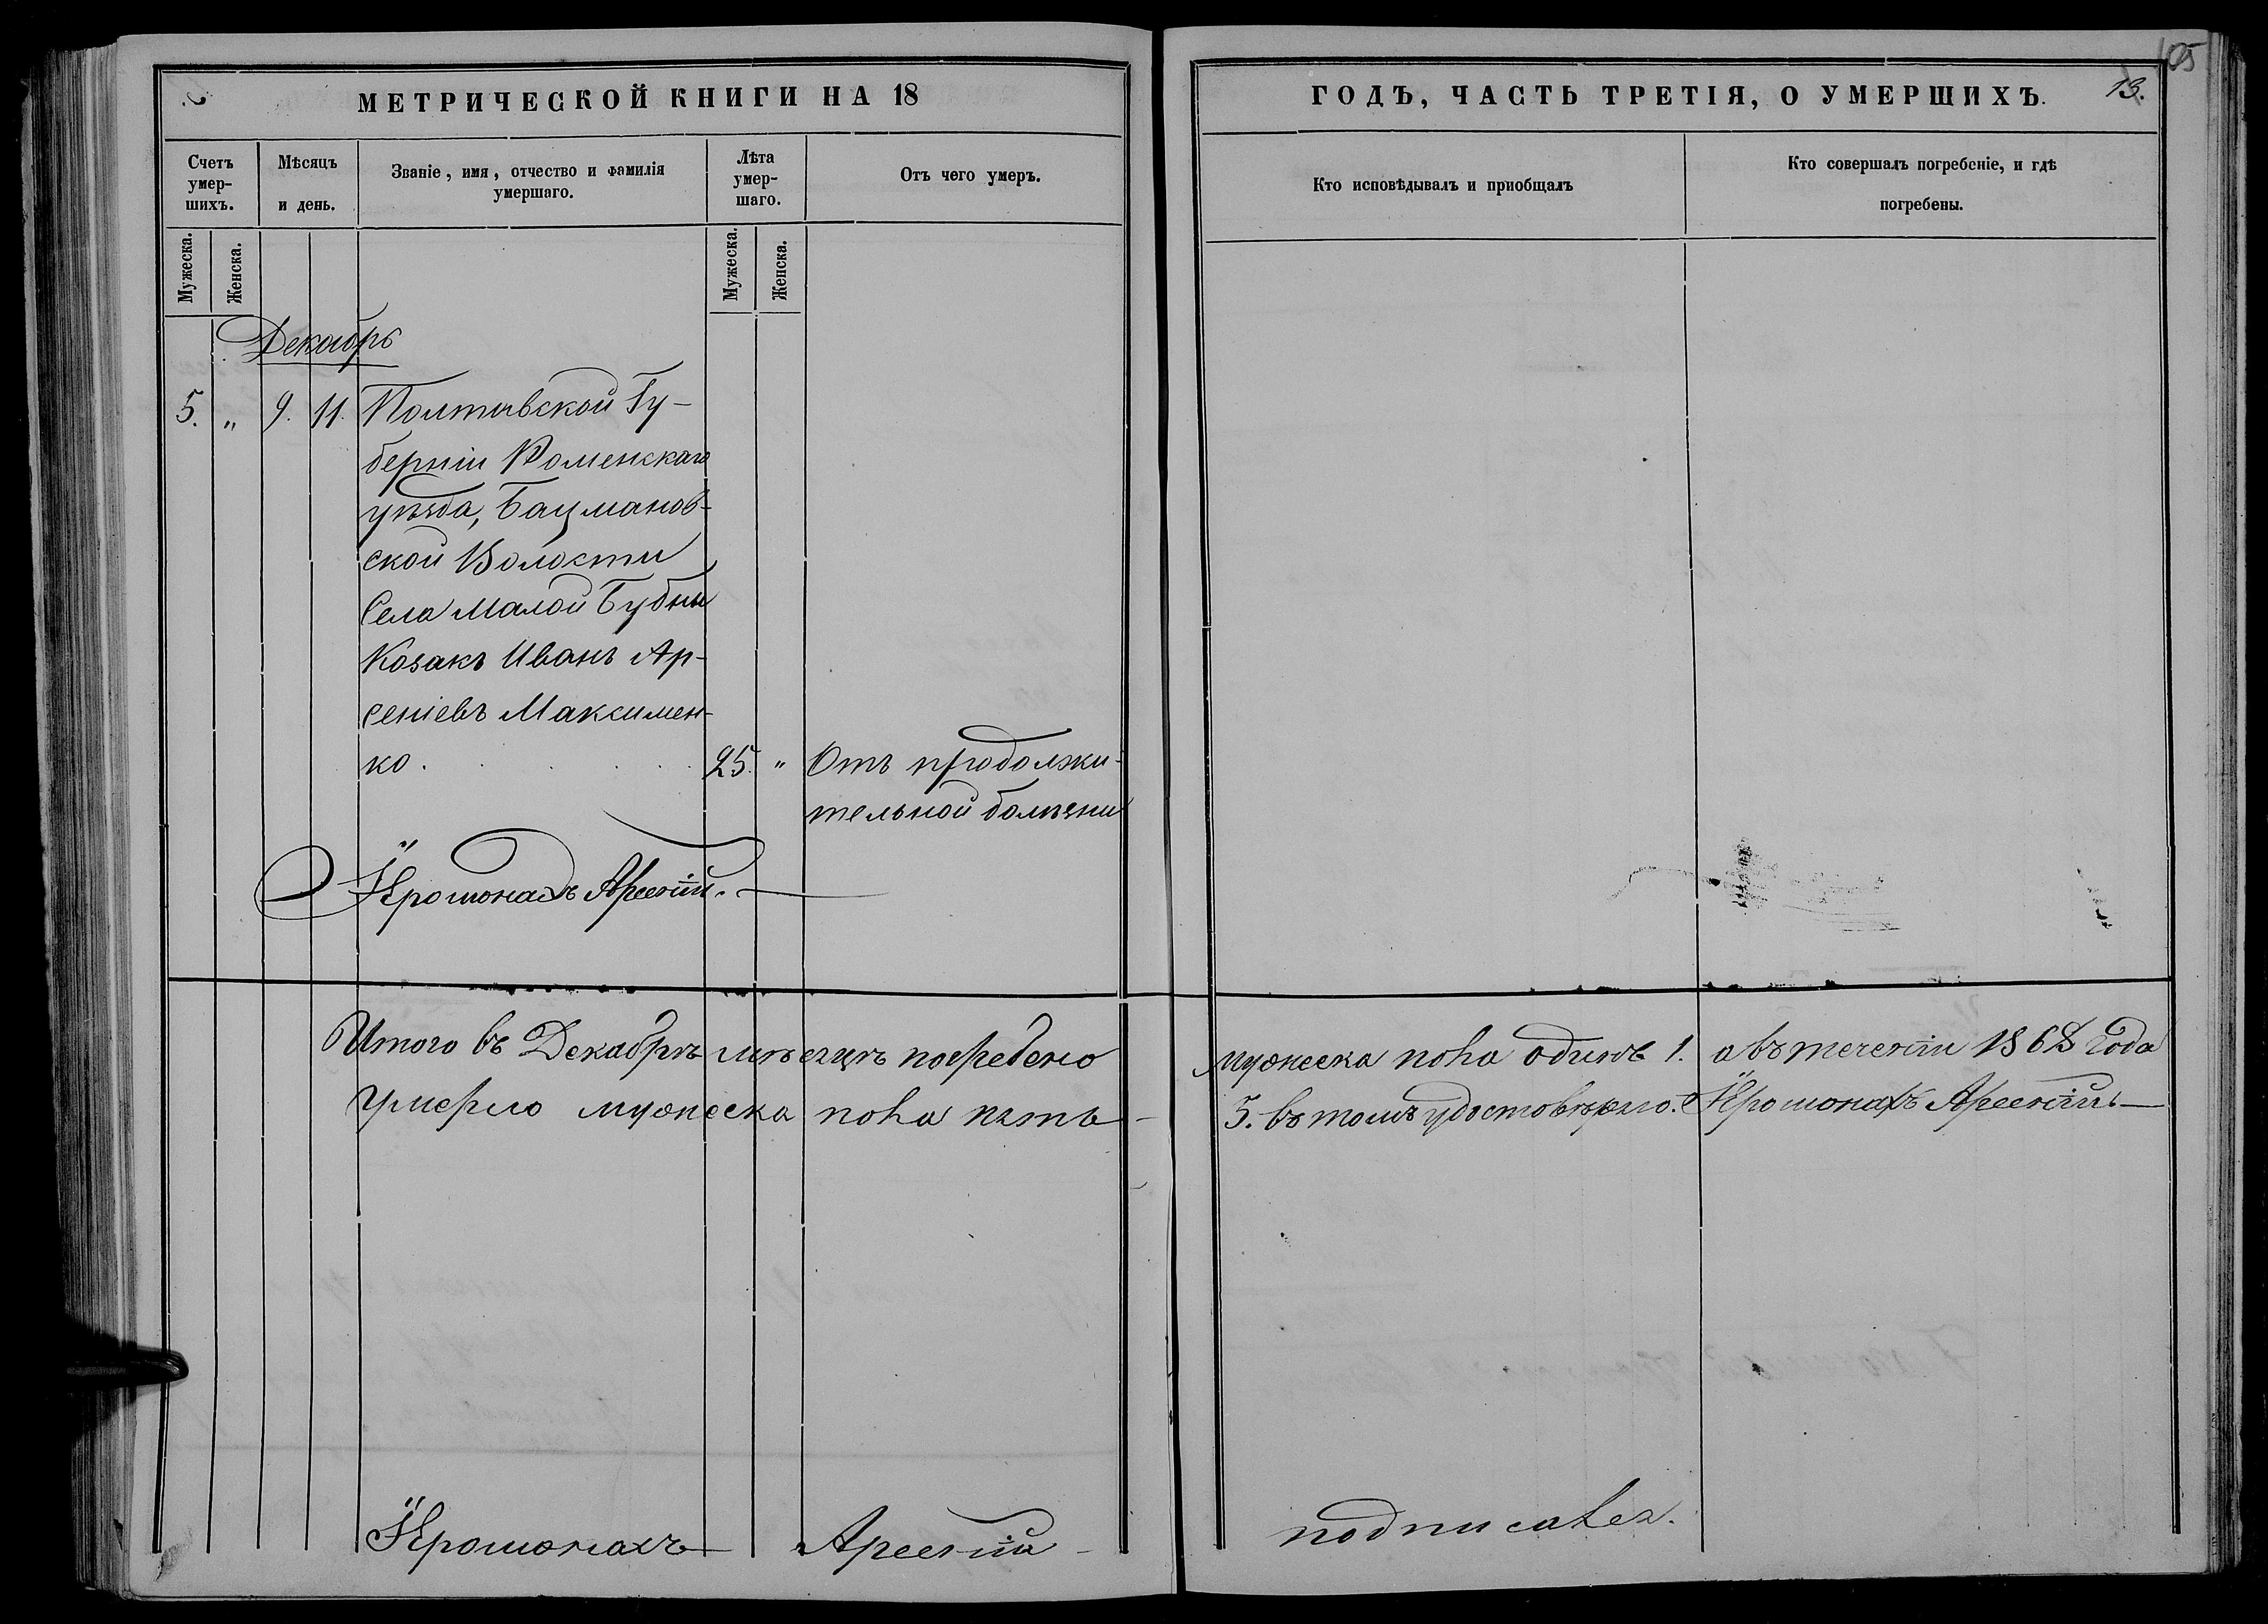 МЕТРИЧЕСКОЙ КНИГИ НА 18
Счетъ умер-
шихъ.
Мѣсяцъ
и день.
Званіе, имя, отчество и фамилія
умершаго.
Лѣта
умер-
шаго.
Отъ чего умеръ.
Мужеска.
Женска.
Мужеска.
Женска.
Декабрь
5. „ 9. 11. Полтавской Гу-
берніи Роменскаго
уѣзда, Бацманов-
ской Волости
Села Малой Бубны
Козакъ Иванъ Ар-
сеніевъ Максимен-
ко. 25. „ Отъ продолжи-
тельной болѣзни
Іеромонахъ Арсеній.
Итого въ Декабрѣ мѣсяцѣ погребено
умерло мужеска пола пять
Іеромонахъ Арсеній
105
ГОДЪ, ЧАСТЬ ТРЕТІЯ, О УМЕРШИХЪ.
13.
Кто исповѣдывалъ и приобщалъ
Кто совершалъ погребеніе, и гдѣ
погребены.
мужеска пола одинъ 1. а въ теченіи 1868 года
5. въ томъ удостовѣряю. Іеромонахъ Арсеній
подписался.